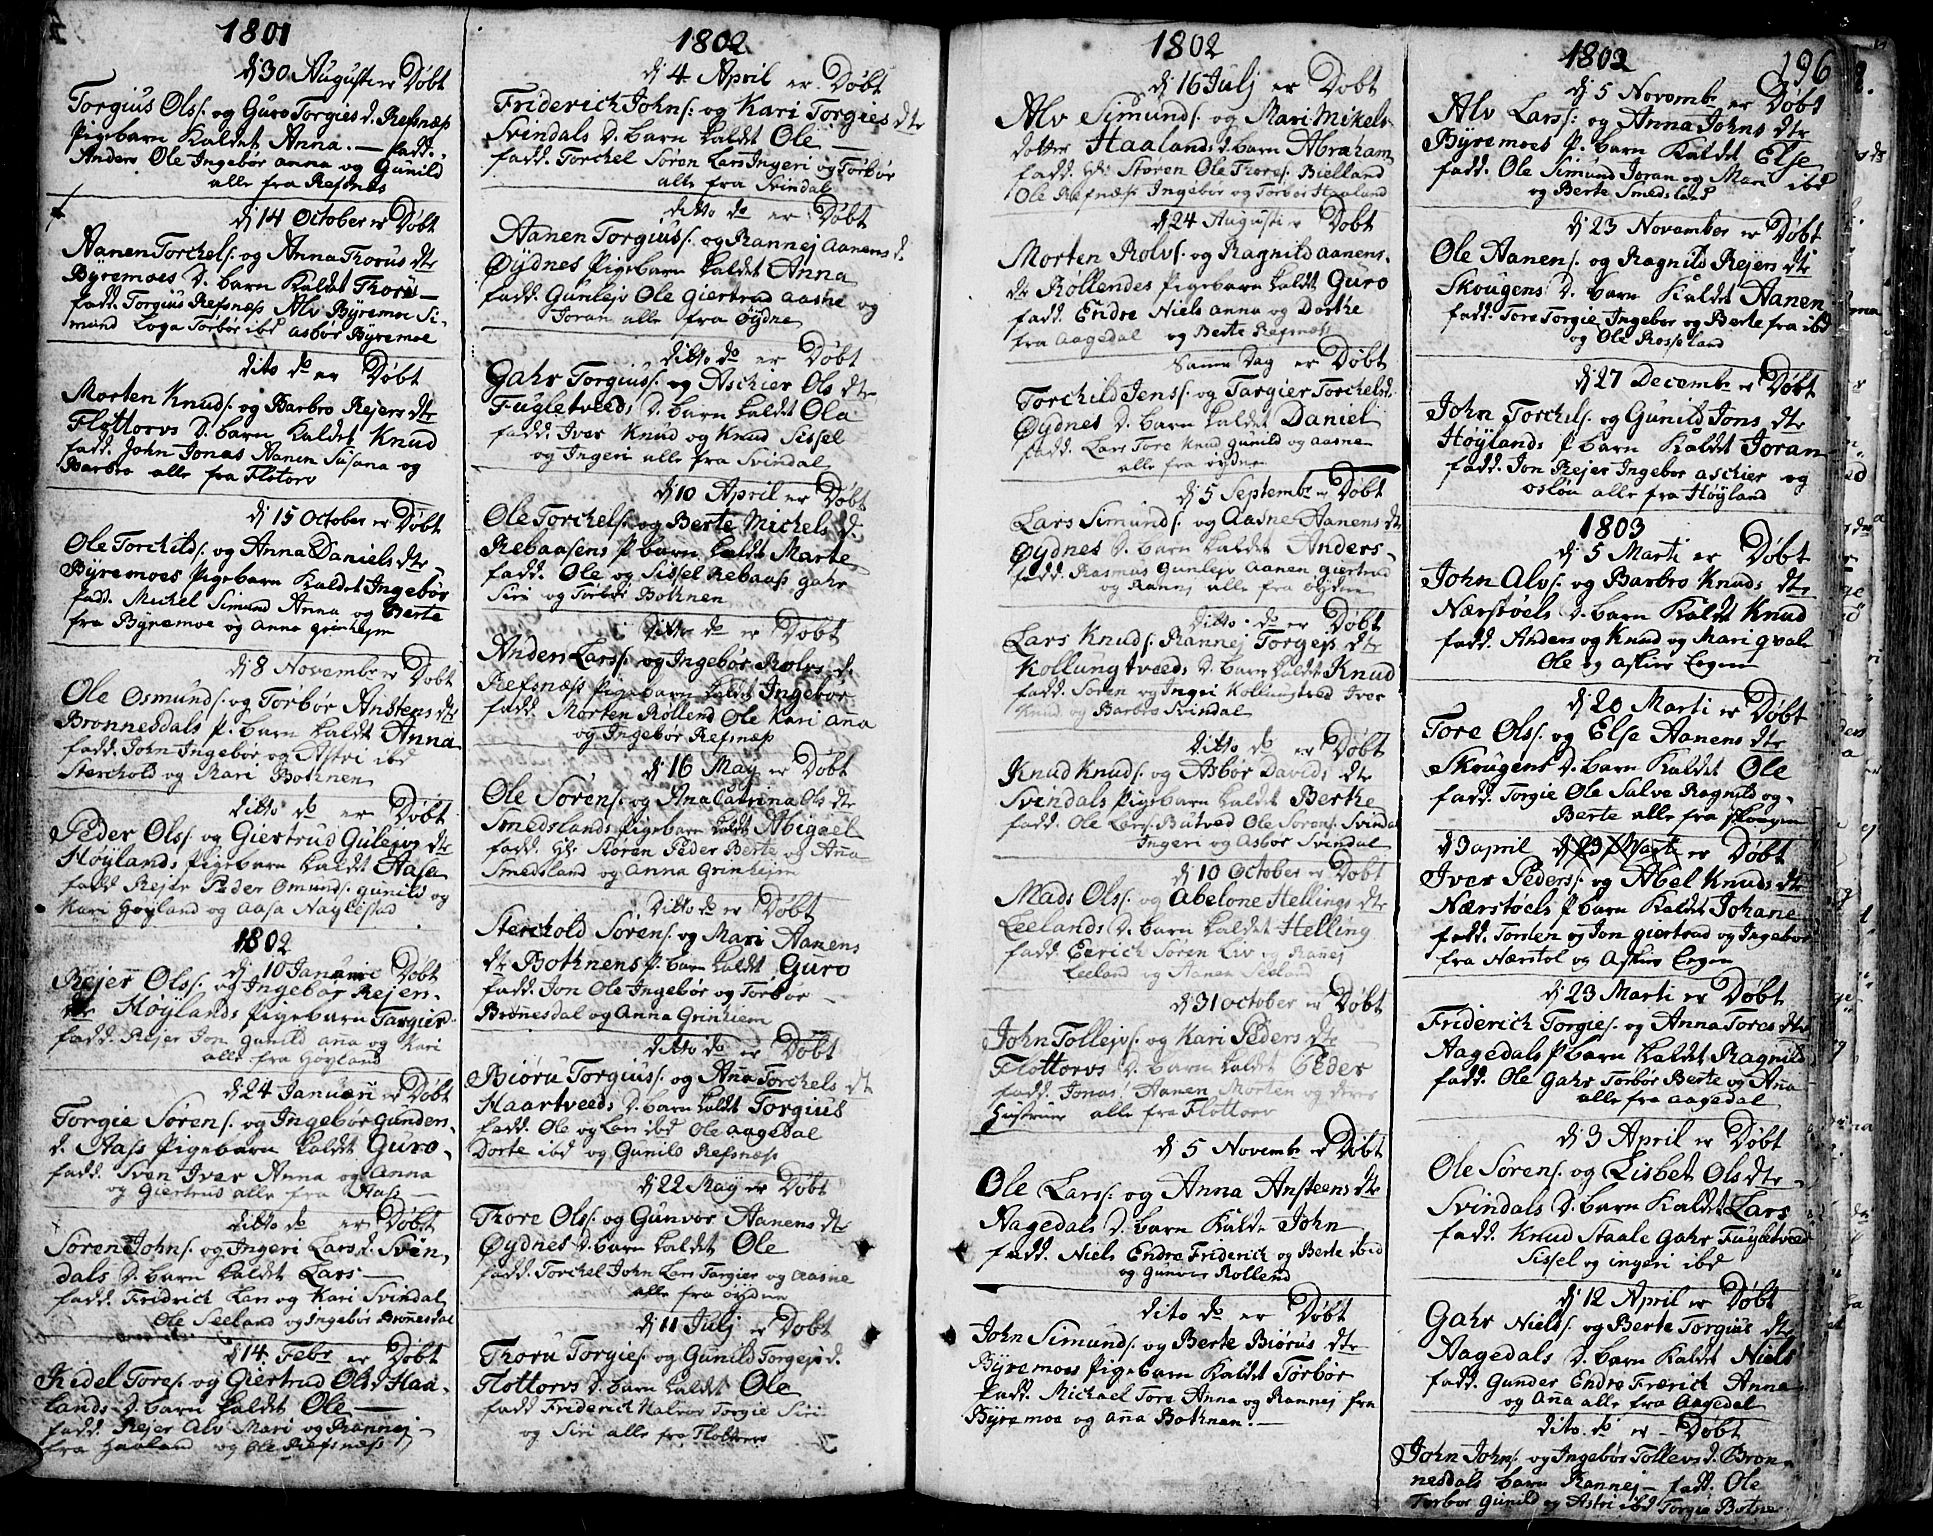 1801
dj 30 Augusti er Døbt
Torgius Ols: og Guro Torgies d. Refsnæs
Pigebarn kaldet Anna. — fadd.
Anders Ole Ingebor anna og Gunild
alle fra Refsnes
dj 14 October er Døbt
Aanen Torchels: og Anna Thorus dtr
Byremoes D. barn kaldet Thore —
fadd. Torgius Refsnæs Alv Byremoe Si-
mund Loga Torbor ibd asbor Byremoe
dito do er Døbt
Morten Knuds: og Barbro Rejers dtr
Flottorvs D. barn kaldet Knud
fadd. John Jonas Aanen Susana og
Barbro alle fra Flotorv
dj 15 October er Døbt
Ole Torchilds: og Anna Daniels dtr
Byremoes Pigebarn kaldet Ingebør
fadd. Michel Simund Anna og Berte
fra Byremoe og Anna grinhejm
dj 8 November er Døbt
Ole Osmunds: og Torbør Anstens dtr
Bronnesdals P. barn kaldet Anna
fadd. John Ingebor og Astri ibd
Sterchold og Mari Bothnen
ditto do er Døbt
Peder Ols: og Giertrud Gulejvs dtr
Høylands Pigebarn kaldet Aasa
fadd Rejer Peder Omunds: gunild og
Kari Høyland og Aasa Naglestad
1802
dj 10 Januarii Døbt
Rejer Ols: og Ingebor Rejer-
dtr Høylands Pigebarn Targier
fadd. Rejer Jon Gunild ana og Kari
alle fra Høyland
dj 24 Januarij er Døbt
Torgie Sørens: og Ingebør Gunden-
d. Aass Pigebarn kaldet Guro
fadd. Sven Iver Anna og Anna
og Giertrus alle fra Aass —
ditto do er Døbt
Søren Johns: og Ingeri Lars d. Svin-
dals D. barn kaldet Lars —
fadd. Fridrich Lars og Kari Svindal
Ole Seeland og Ingebør Brønesdal
dj 14 Febr er Døbt
Kidel Tores: og Giertrud Ols d Haa-
lands D. barn kaldet Ole —
fadd. Rejer Alv Mari og Rannej
fra Haaland og Ole Refsnæss
1802
dj 4 April er Døbt
Friderich Johns: og Kari Torgies dtr
Svindals D. barn kaldet Ole —
fadd. Torchel Soren Lars Ingeri og Torbør
alle fra Svindal
ditto do er Døbt
Aanen Torgius: og Rannej Aanens d.
Øydnes Pigebarn kaldet Anna
fadd. Gunlejv Ole Giertrud aasne og
Joran alle fra Øydne
ditto do er Døbt
Gahr Torgius: og Aschier Ols dtr
Fugletveeds D. barn kaldet Ola
fadd. Iver Knud og Knud Sissel
og Ingeri alle fra Svindal
dj 10 April er Døbt
Ole Torchels: og Berte Michels d.
Rebaasens P. barn kaldet Marte
fadd. Ole og Sissel Rebaass gahr
Siri og Torbør Bothnen
ditto do er Døbt
Anden Lars: og Ingebor Rolvs d.
Refsnæss Pigebarn kaldet Ingebor
fadd. Morten Røllend Ole Kari ana
og Ingebor Refsnæss
dj 16 May er Døbt
Ole Sørens: og Ana Catrina Ols dtr
Smedslands Pigebarn kaldt Abigael
fadd. Hr Støren Peder Berte og Anna
Smedsland og Anna Grinhejm
Ditto do er Døbt
Sterchold Sørens: og Mari Aanens
dtr Bothnens P. barn kaldet Guro
fadd. Jon Ole Ingebør og Torbør —
Brønesdal og Anna Grinhiem
ditto do er Døbt
Biøru Torgius: og Ana Torchels dt
Haartveeds D. barn kaldt Torgius
fadd. Ole og Lars ibd Ole aagedal
Dorte ibd og Gunild Refsnæss
dj 22 May er Døbt
Thore Ols: og Gunvor Aanens dtr
Øydnes D. barn kaldet Ole
fadd. Torchel John Lars Targier og Aasne
alle fra øydne
dj 11 Julj er Døbt
Thoru Torgies: og Gunild Torgejs d.
Flottorvs D. barn kaldet Ole
fadd Friderich Halvor Torgie Siri
og Siri alle fra Flottorv
1802
dj 16 Julj er Døbt
Alv Simunds: og Mari Mikels
dotter Haalands D. barn Abraham
fadd. Hr Støren Ole Thores: Bielland
Ole Refnæss Ingebør og Torbør Haaland
dj 24 Augusti er Døbt
Morten Rolvs: og Ragnild aanens
dtr Røllendes Pigebarn kaldt Guro
fadd. Endre Niels anna og Dorthe
fra Aagedal og Berte Refsnæss
Samme Dag er Døbt
Torchild Jens: og Targier Torchels d.
Øydnes D. barn kaldet Daniel
fadd. Lars Tore Knud gunild og aasne
alle fra øydne
dj 5 Septembr er Døbt
Lars Simunds: og Aasne Aanens dtr
Øydnes D. barn kaldet Anders
fadd. Rasmus Gunlejv Aanen giertrud
og Ranej alle fra øydne
ditto do er Døbt
Lars Knuds: Rannej Torgejs dtr
Kollungtveeds D. barn kaldet Knud
fadd. Søren og Ingri Kollungtved Iver
Knud og Barbro Svindal
Ditto do er Døbt
Knud Knuds: og Asbør Davids dtr
Svindals Pigebarn kaldet Berthe
fadd. Ole Lars: Butved Ole Sørens: Svindal
Ingeri og Asbør Svindal
dj 10 October er Døbt
Mads Ols: og Abelone Hellings dtr
Leelands D. barn kaldet Helling
fadd. Eerich Søren Liv og Ranej
Leeland og Aanen Seeland
dj 31 October er Døbt
John Tollejvs: og Kari Peders dtr
Flottorvs D. barn kaldet Peder
fadd. Jonas Aanen Morten og deres
Hustruer alle fra Flottorv
dj 5 Novembr er Døbt
Ole Lars: og Anna Ansteens dtr
Aagedals D. barn kalde John
fadd. Niels Endre Friderich og Berte ibid
og Gunvor Rollend
dito do er Døbt
John Simunds: og Berte Biørus dtr
Byremoes Pigebarn kaldet Torbør
fadd. Michael Tore Anna og Rannej fra
Byremoe og Ana Bothnen. —
1802 196
dj 5 Novembr er Døbt
Alv Lars: og Anna Johns dtr
Byremoes P. barn kaldet Else
fadd. Ole Simund Joran og Mari ibd
og Berte Smedsland
dj 23 November er Døbt
Ole Aanens: og Ragnild Rejers dtr
Skougens D. barn kaldet Aanen
fadd. Tore Torgie Ingebor og Berte fra ibd
og Ole Rosseland
dj 27 Decembr er Døbt
John Torchels: og Gunild Jons dtr
Høylands P barn kaldet Joran
fadd. Jon Rejer Ingebor aschier og
Oslou alle fra Høyland
1803
dj 5 Marti er Døbt
John Alvs: og Barbro Knuds dtr
Nærstøels D. barn kaldet Knud
fadd. Anders og Knud og Mari qvale
Ole og Askier Eogen
dj 20 Marti er Døbt
Tore Ols: og Else Aanens dtr
Skougens D. barn kaldet Ole
fadd. Torgie Ole Salve Ragnild og
Berte alle fra skougen
dj 3 april dj 23 Marti er Døbt
Iver Peders: og Abel Knuds dtr
Nærstoels P. barn kaldet Johane
fadd. Torsten og Jon giertrud og Ingebor
fra Nærstol og Askier Eogen
dj 23 Marti er Døbt
Friderich Torgies: og Anna Tores dtr
Aagedals P barn kaldet Ragnild
fadd. Ole Gahr Torbør Berte og Ana
alle fra aagedal
dj 3 April er Døbt
Ole Sørens: og Lisbet Ols dtr
Svindals D. barn kaldet Lars
fadd. Knud Staale Gahr Fugletveed
Sissel og ingeri ibd
dj 12 April er Døbt
Gahr Niels: og Berte Torgius dtr
Aagedals D. barn kaldet Niels
fadd. Gunder Endre Frærich Anne
og Ana alle fra Aagedal
dito do er Døbt
John Johns: og Ingebør Tollevs d. Bron-
nesdals barn Rannej — fadd. Ole
Torbor Gunild og Astri ibd Torgie Botne